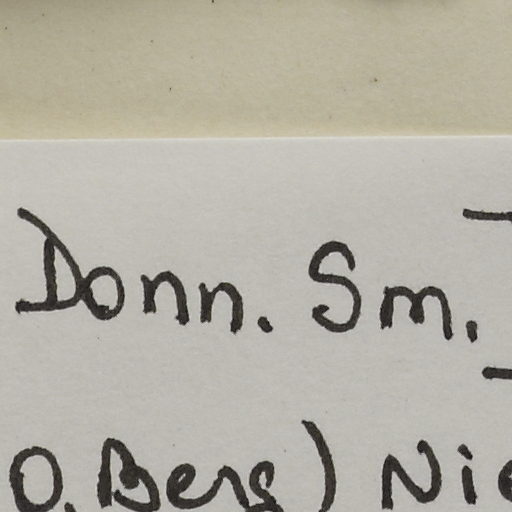 Donn. Sm.
O. Berg) Nie